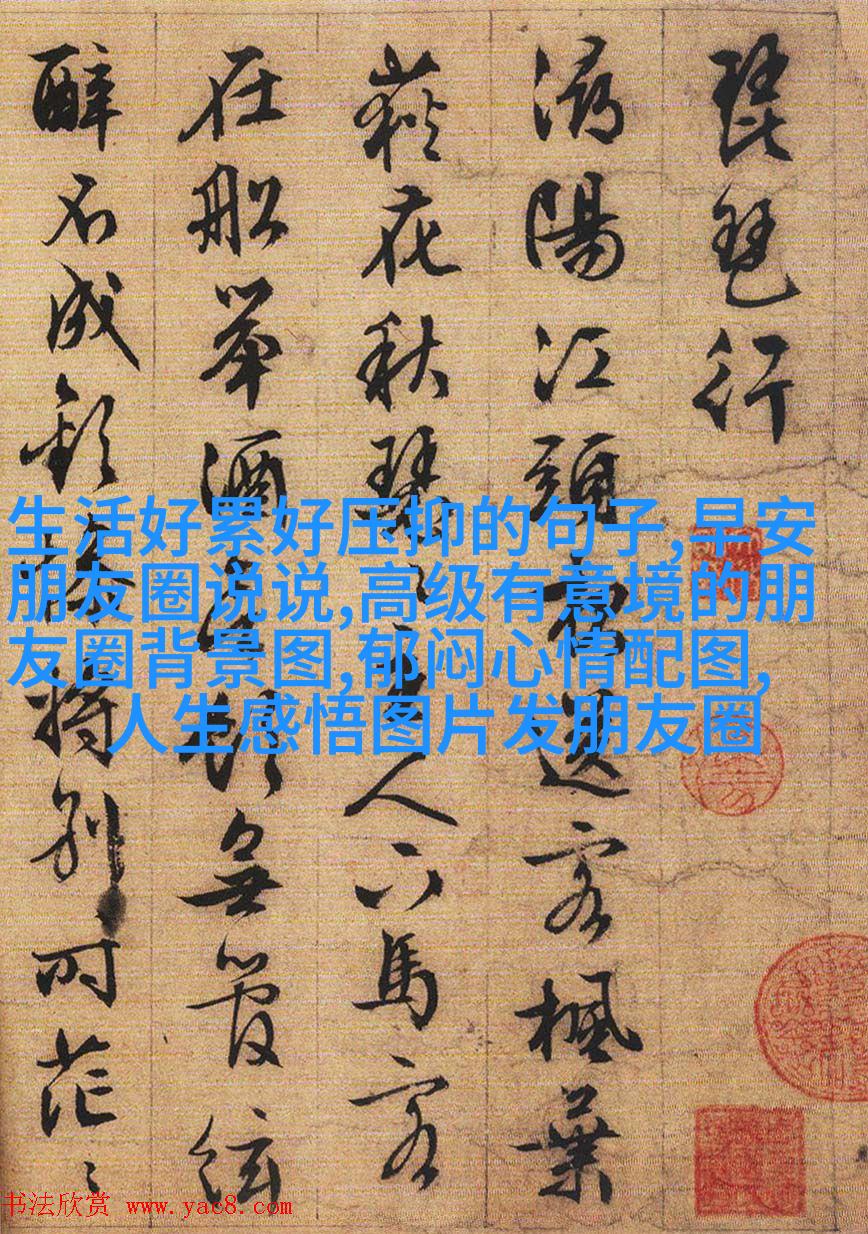 琵琶行
潯陽江頭夜送客楓葉
荻花秋瑟〻主人下馬客
在船舉酒欲飲無管絃
醉不成歡慘將別時茫〻
生活好累好压抑的句子,早安
朋友圈说说,高级有意境的朋
友圈背景图,郁闷心情配图,
人生感悟图片发朋友圈
书法欣赏 www.yac8.com